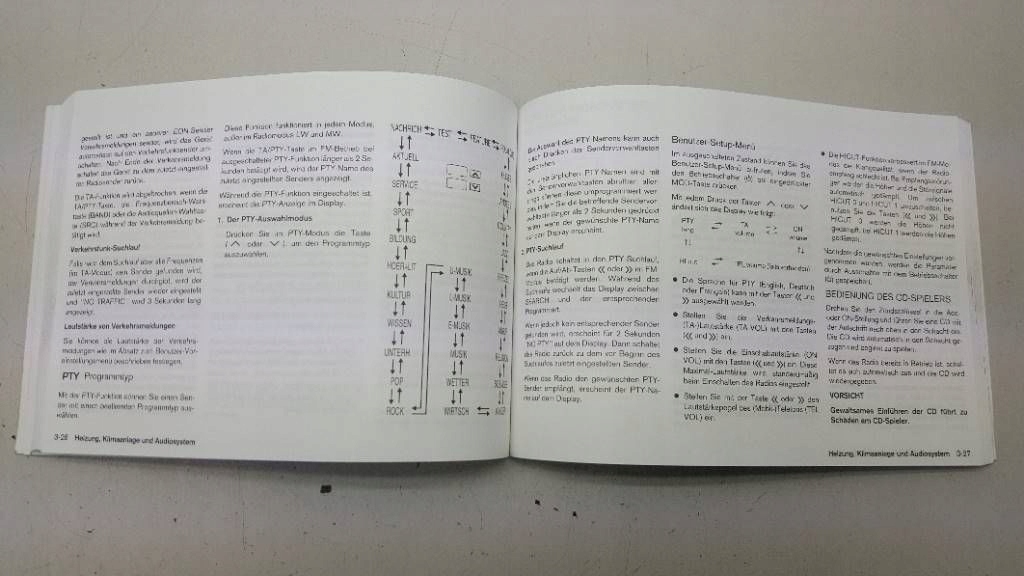 gewählt ist und ein anderer EON-Sender
Verkehrsmeldungen sendet, wird das Gerät
automatisch auf den Verkehrsfunksender um-
schalten. Nach Ende der Verkehrsmeldung
schaltet das Gerät zu dem zuletzt eingestell-
ten Radiosender zurück.
Die TA-Funktion wird abgebrochen, wenn die
TA/PTY-Taste, die Frequenzbereich-Wahl-
taste (BAND) oder die Audioquellen-Wahltas-
te (SRC) während der Verkehrsmeldung be-
tätigt wird.
Verkehrsfunk-Suchlauf
Falls nach dem Suchlauf über alle Frequenzen
(im TA-Modus) kein Sender gefunden wird,
der Verkehrsmeldungen durchgibt, wird der
zuletzt eingestellte Sender wieder eingestellt
und "NO TRAFFIC" wird 3 Sekunden lang
angezeigt.
Lautstärke von Verkehrsmeldungen
Sie können die Lautstärke der Verkehrs-
meldungen wie im Absatz zum Benutzer-Vor-
einstellungsmenü beschrieben festlegen.
PTY Programmtyp
Mit der PTY-Funktion können Sie einen Sen-
der mit einem bestimmten Programmtyp aus-
wählen.
3-26 Heizung, Klimaanlage und Audiosystem
Diese Funktion funktioniert in jedem Modus,
außer im Radiomodus LW und MW.
Wenn die TA/PTY-Taste im FM-Betrieb bei
ausgeschalteter PTY-Funktion länger als 2 Se-
kunden betätigt wird, wird der PTY-Name des
zuletzt eingestellten Senders angezeigt.
Während die PTY-Funktion eingeschaltet ist,
erscheint die PTY-Anzeige im Display.
1. Der PTY-Auswahlmodus
Drücken Sie im PTY-Modus die Taste
( ∧ oder ∨ ), um den Programmtyp
auszuwählen.
NACHRICH ⇆ TEST
AKTUELL
SERVICE
SPORT
BILDUNG
HOER+LIT U-MUSIK
KULTUR L-MUSIK
WISSEN E-MUSIK
UNTERH MUSIK
POP WETTER
ROCK WIRTSCH
Die Auswahl des PTY-Namens kann auch
durch Drücken der Sendervorwahltasten
geschehen.
Die ursprünglichen PTY-Namen sind mit
den Sendervorwahltasten abrufbar, aller-
dings können diese umprogrammiert wer-
den, indem Sie die betreffende Sendervor-
wahltaste länger als 2 Sekunden gedrückt
halten, wenn der gewünschte PTY-Name
auf dem Display erscheint.
2. PTY-Suchlauf
Das Radio schaltet in den PTY-Suchlauf,
wenn die Auf/Ab-Tasten (⟪ oder ⟫) im FM-
Modus betätigt werden. Während des
Suchlaufs wechselt das Display zwischen
SEARCH und der entsprechenden
Programmart.
Wenn jedoch kein entsprechender Sender
gefunden wird, erscheint für 2 Sekunden
"NO PTY" auf dem Display. Dann schaltet
das Radio zurück zu dem vor Beginn des
Suchlaufs zuletzt eingestellten Sender.
Wenn das Radio den gewünschten PTY-
Sender empfängt, erscheint der PTY-Na-
me auf dem Display.
Benutzer-Setup-Menü
Im ausgeschalteten Zustand können Sie das
Benutzer-Setup-Menü aufrufen, indem Sie
den Betriebsschalter bei eingedrückter
MODI-Taste drücken.
Mit jedem Druck der Tasten ∧ oder ∨
ändert sich das Display wie folgt:
PTY lang ⇄ TA volume ⇄ ON volume
HI cut ⇄ TEL volume
● Die Sprache für PTY (English, Deutsch
oder Français) kann mit den Tasten ⟪ und
⟫ ausgewählt werden.
● Stellen Sie die Verkehrsmeldungs-
(TA)-Lautstärke (TA VOL) mit den Tasten
(⟪ und ⟫) ein.
● Stellen Sie die Einschaltlautstärke (ON
VOL) mit den Tasten (⟪ und ⟫) ein. Diese
Maximal-Lautstärke wird standardmäßig
beim Einschalten des Radios eingestellt.
● Stellen Sie mit der Taste ⟪ oder ⟫ den
Lautstärkepegel des (Mobil-)Telefons (TEL
VOL) ein.
● Die HICUT-Funktion verbessert im FM-Mo-
dus die Klangqualität, wenn der Radio-
empfang schlecht ist. Bei Empfangsstörun-
gen werden die Höhen und die Stereotrennung
automatisch gedämpft. Um zwischen
HICUT 0 und HICUT 1 umzuschalten, be-
nutzen Sie die Tasten (⟪ und ⟫). Bei
HICUT 0 werden die Höhen nicht
gedämpft, bei HICUT 1 werden die Höhen
gedämpft.
Nachdem die gewünschten Einstellungen vor-
genommen wurden, werden die Parameter
durch Ausschalten mit dem Betriebsschalter
gespeichert.
BEDIENUNG DES CD-SPIELERS
Drehen Sie den Zündschlüssel in die Acc-
oder ON-Stellung und führen Sie eine CD mit
der Aufschrift nach oben in den Schacht ein.
Die CD wird automatisch in den Schacht ge-
zogen und beginnt zu spielen.
Wenn das Radio bereits in Betrieb ist, schal-
tet es sich automatisch aus und die CD wird
wiedergegeben.
VORSICHT
Gewaltsames Einführen der CD führt zu
Schäden am CD-Spieler.
Heizung, Klimaanlage und Audiosystem 3-27